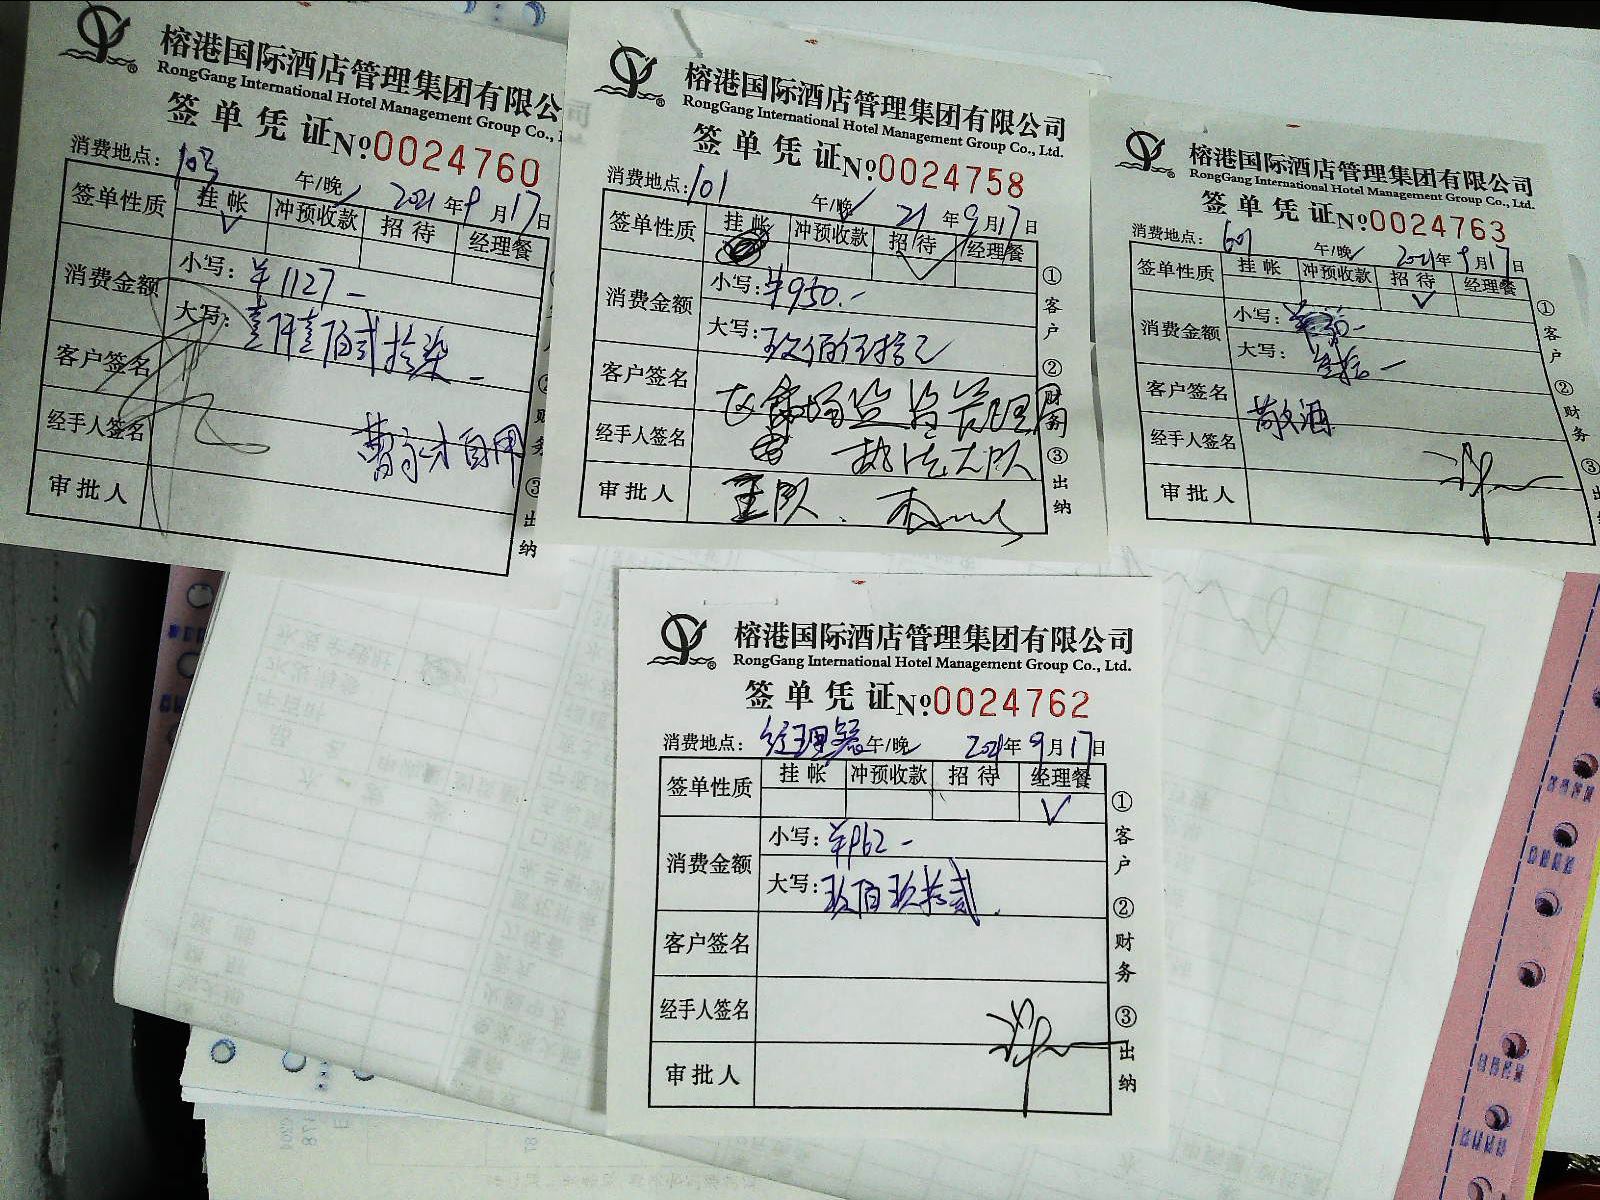 榕港国际酒店管理集团有限公
RongGang International Hotel Management Group Co.,
签单凭证 №0024760
消费地点：103 午/晚 2021年9月17日
签单性质 挂帐 冲预收款 招待 经理餐
消费金额 小写：¥1127-
大写：壹仟壹佰贰拾柒-
客户签名
经手人签名
审批人
财务
③出纳
榕港国际酒店管理集团有限公司
RongGang International Hotel Management Group Co., Ltd.
签单凭证 №0024758
消费地点：101 午/晚 21年9月17日
签单性质 挂帐 冲预收款 招待 经理餐
消费金额 小写：¥950.-
大写：玖佰伍拾元
客户签名
经手人签名 执法大队
审批人
①客户
②财务
③出纳
榕港国际酒店管理集团有限公司
RongGang International Hotel Management Group Co., Ltd.
签单凭证 №0024763
消费地点：601 午/晚 2021年9月17日
签单性质 挂帐 冲预收款 招待 经理餐
消费金额 小写：
大写：
客户签名 敬酒
经手人签名
审批人
①客户
②财务
③
榕港国际酒店管理集团有限公司
RongGang International Hotel Management Group Co., Ltd.
签单凭证 №0024762
消费地点：经理餐 午/晚 2021年9月17日
签单性质 挂帐 冲预收款 招待 经理餐
消费金额 小写：¥962-
大写：玖佰玖拾贰
客户签名
经手人签名
审批人
①客户
②财务
③出纳